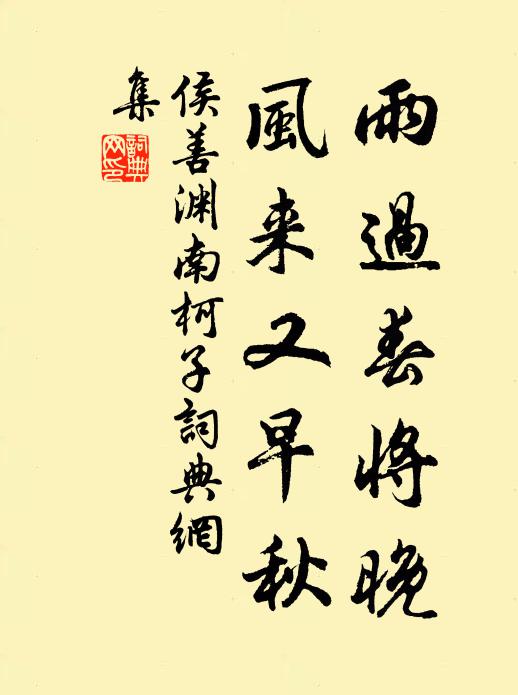 雨過春將晚
風来又早秋
侯善渊南柯子詞典網
集
詞典
网印